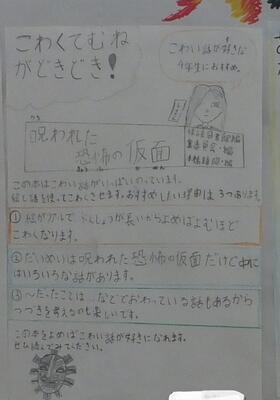 こわくてむね
がどきどき!
こわい話が好きな
4年生におすすめ。
呪われた
恐怖の仮面
この本はこわい話がいっぱいのっています。
おすすめしたい理由は3つあります。
①絵がリアルで 文しょうが長いからよめばよむほど
こわくなります。
②だいめいは呪われた恐怖の仮面だけど中に
はいろいろな話があります。
③〜だったことは…などでおわっている話もあるから
つづきを考えるのも楽しいです。
この本をよめばこわい話が好きになれます。
ぜひ読んでみてください。